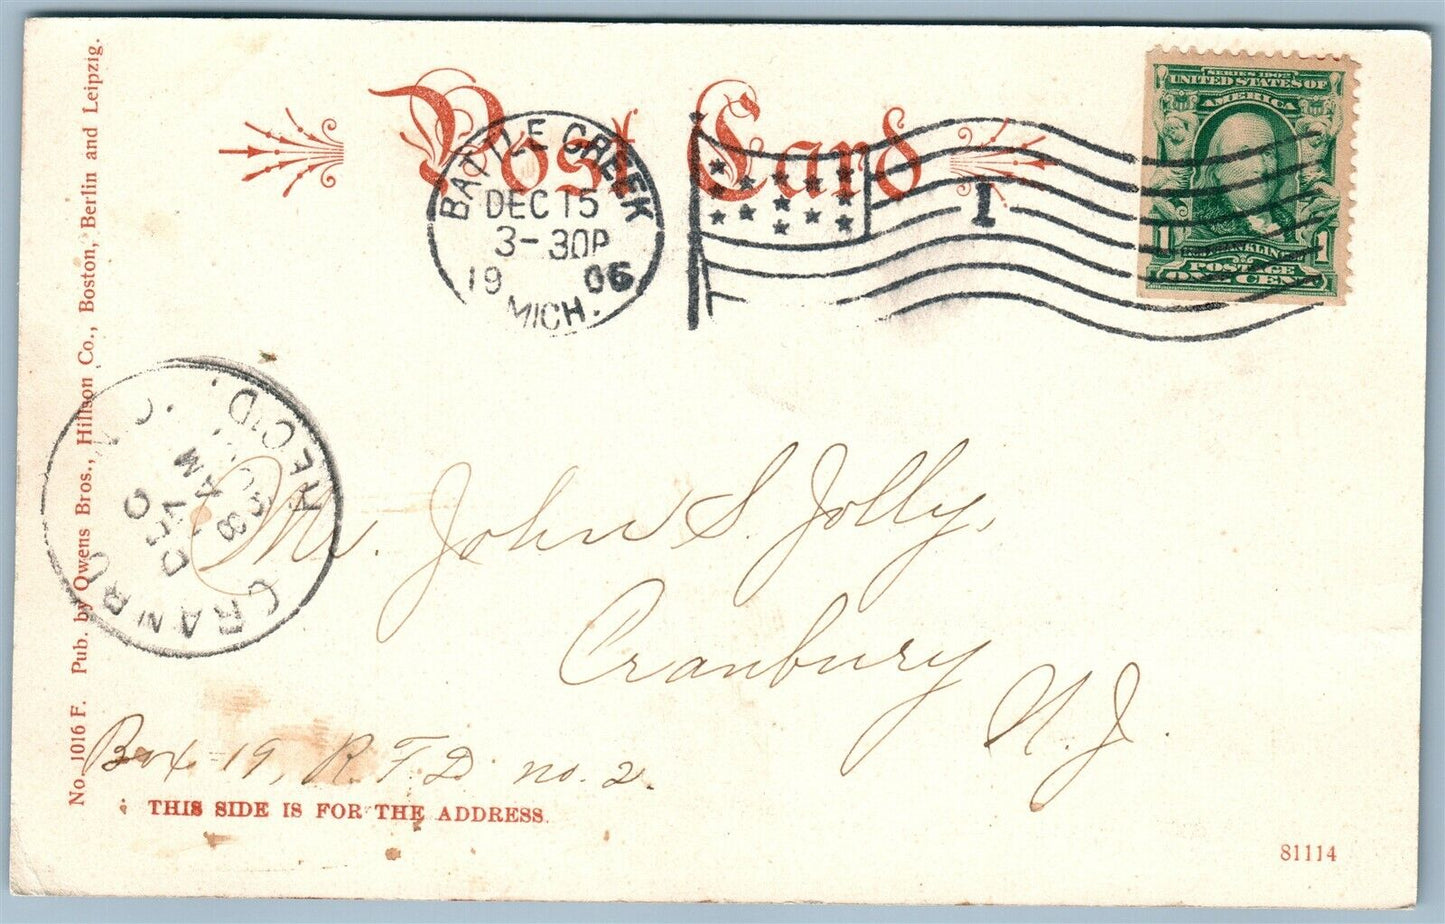 Post Card
BATTLE CREEK
DEC 15
3-30P
1906
MICH.
1
SERIES 1902
UNITED STATES OF
AMERICA
1 FRANKLIN 1
POSTAGE
ONE CENT
No. 1016 F. Pub. by Owens Bros., Hillson Co., Boston, Berlin and Leipzig.
REC'D.
8 AM
CRANBU
Mr. John S. Jolly,
Cranbury
N. J.
Box 19, R. F. D. no. 2.
THIS SIDE IS FOR THE ADDRESS.
81114